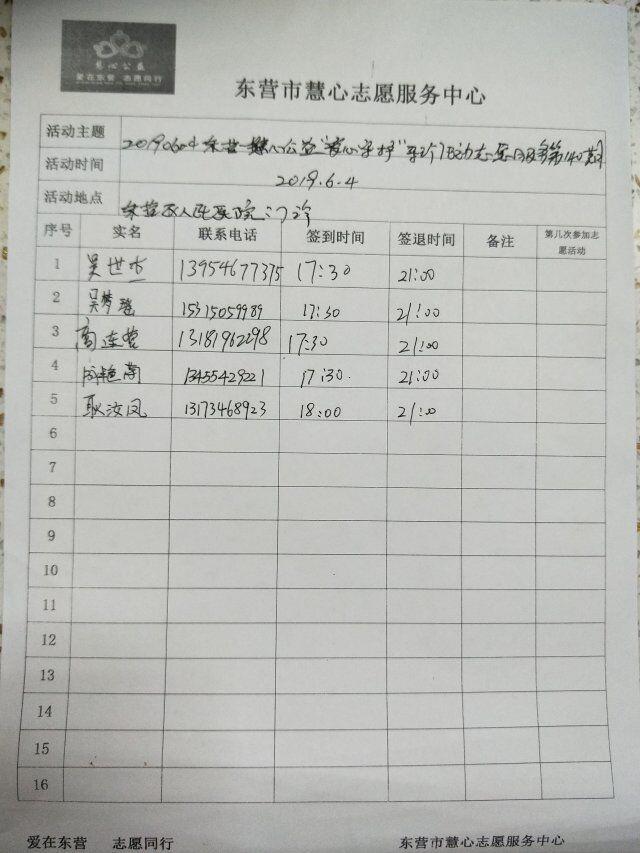 慧心公益
爱在东营 志愿同行
东营市慧心志愿服务中心
活动主题 20190604东营慧心公益"爱心守护"导诊活动志愿服务第140期
活动时间 2019.6.4
活动地点 东营区人民医院门诊
序号 实名 联系电话 签到时间 签退时间 备注 第几次参加志愿活动
1 吴世杰 13954677375 17:30 21:00
2 吴梦瑶 15315059989 17:30 21:00
3 高连营 13181962298 17:30 21:00
4 13455429221 17:30 21:00
5 耿汝凤 13173468923 18:00 21:00
6
7
8
9
10
11
12
13
14
15
16
爱在东营 志愿同行 东营市慧心志愿服务中心